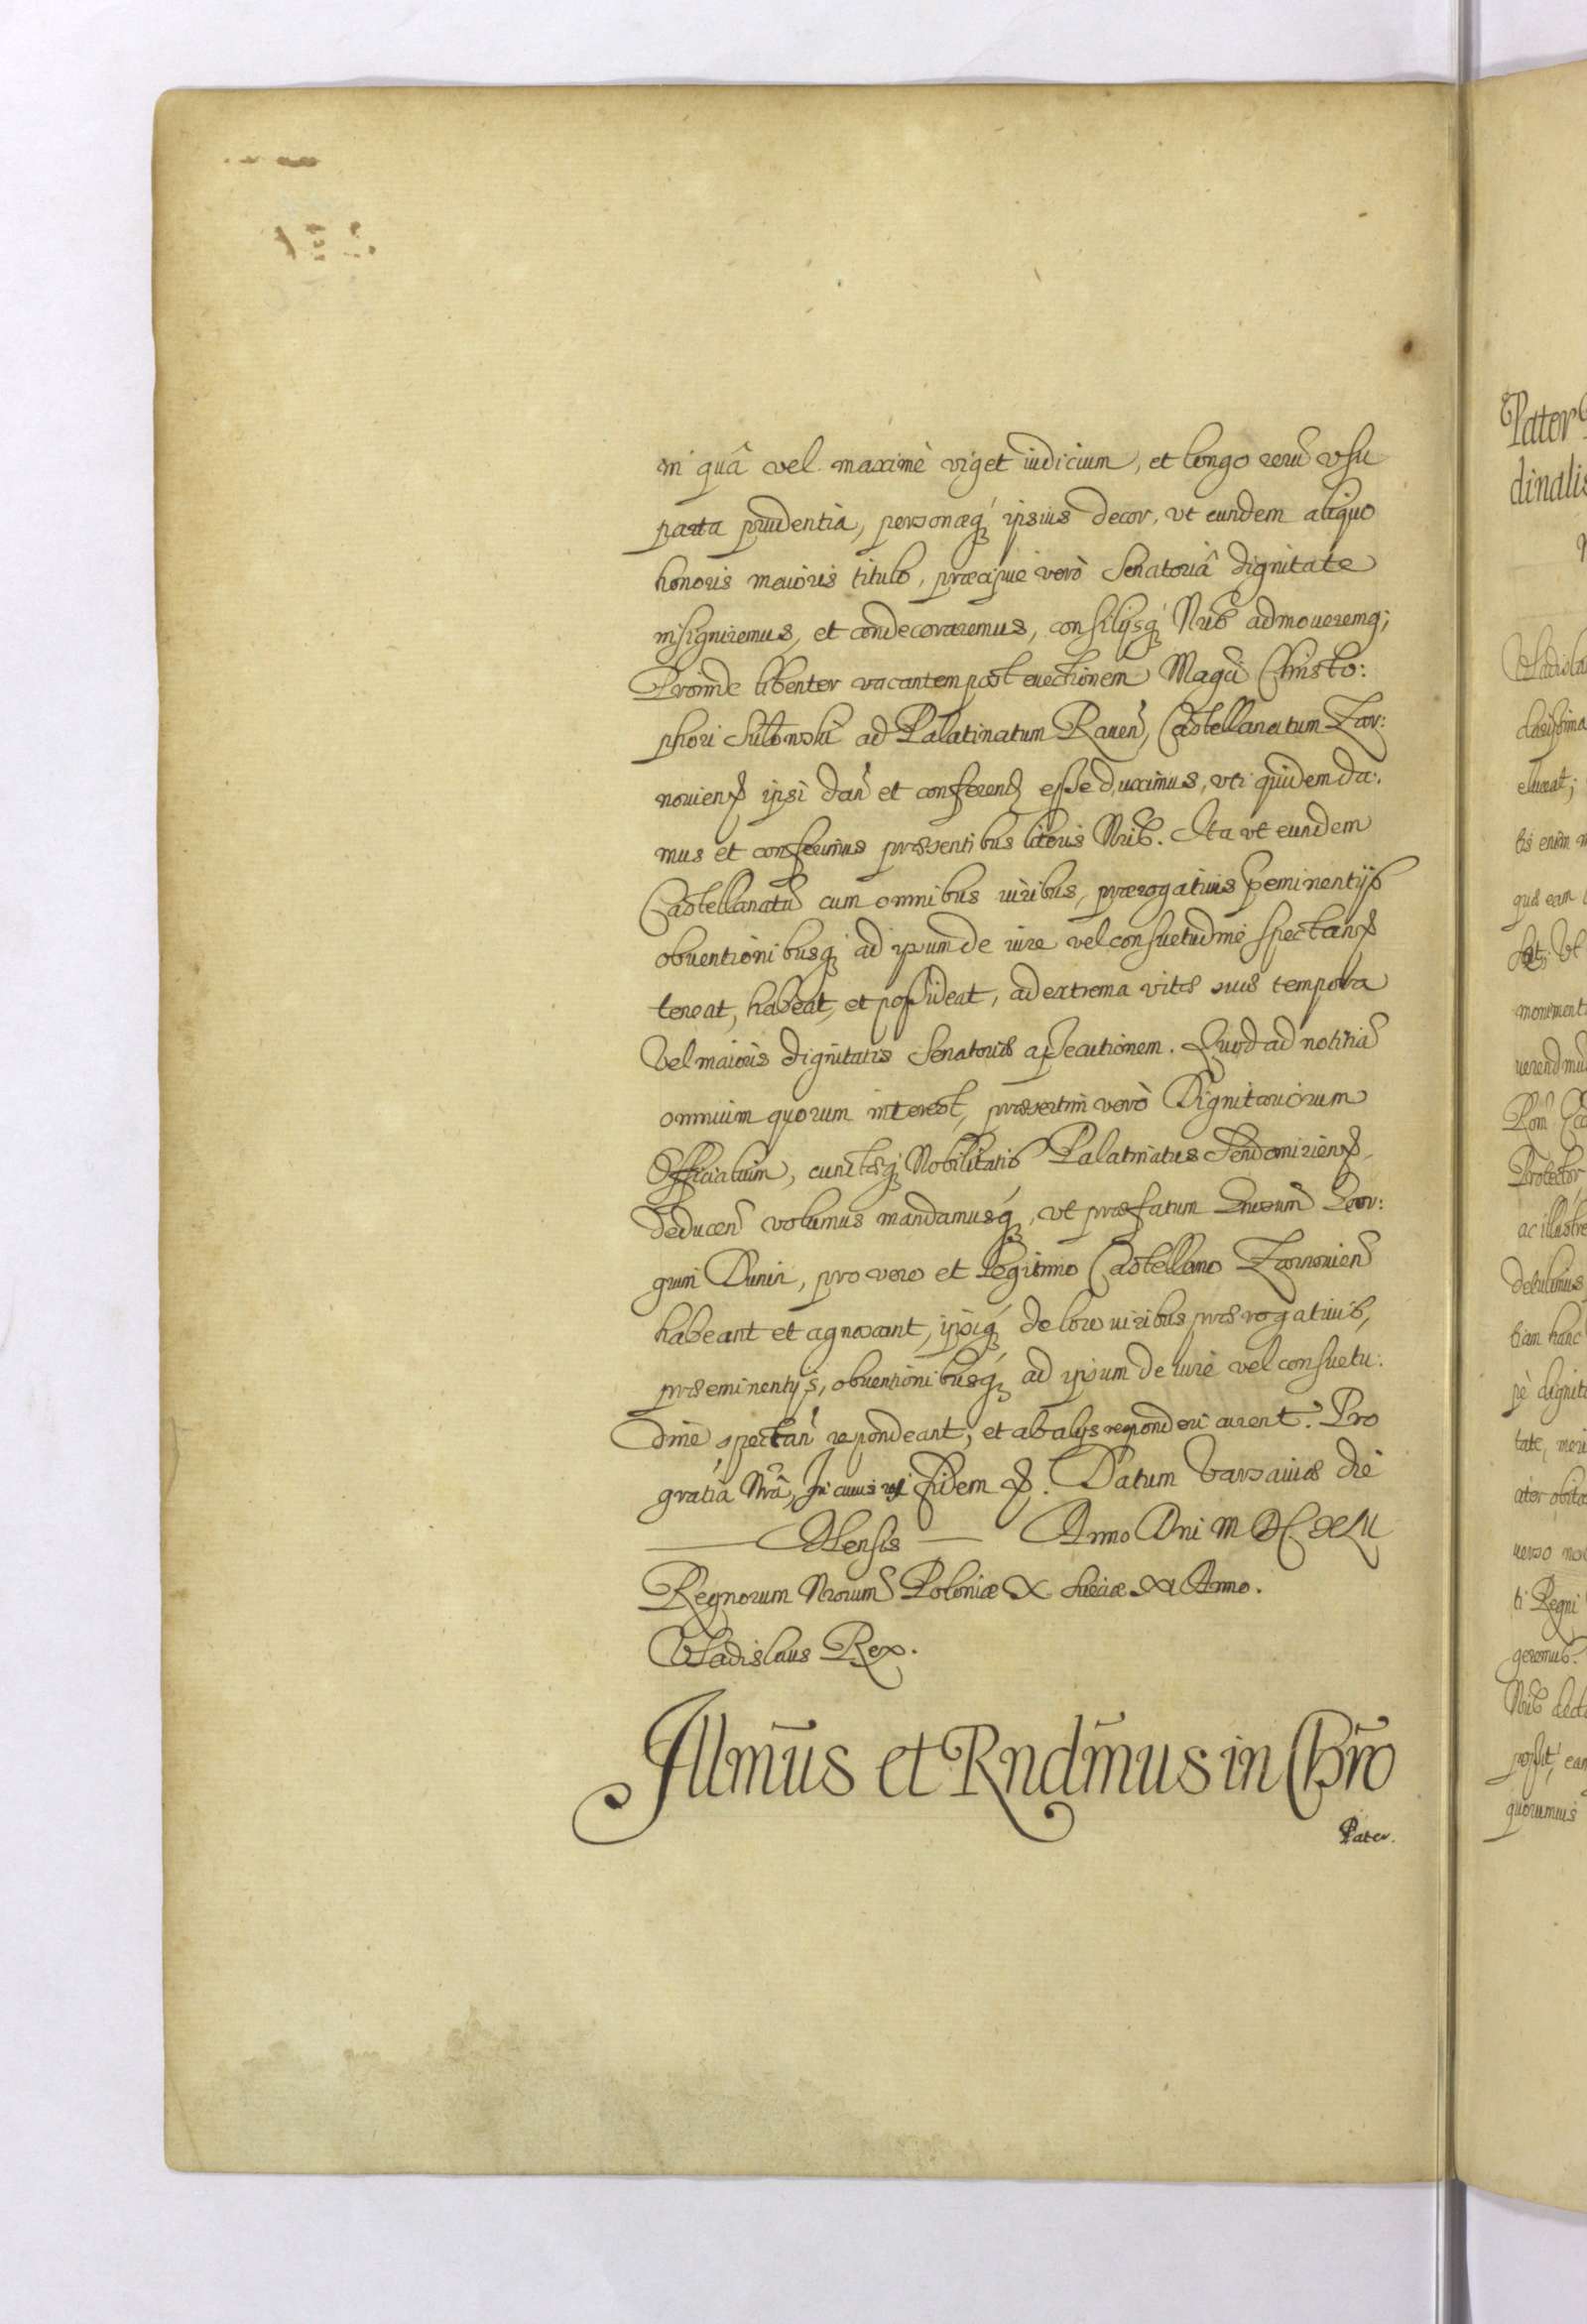 in quâ vel maximè viget iudicium, et longo rerũ vsu
parta prudentia, personæq́ ipsius decor, vt eundem aliquo
honoris maioris titulo, præcipue verò Senatoriâ dignitate
insigniremus, et condecoraremus, consilijsq́ Nr̃is admoueremq;
Proinde libenter vacantem post euectionem Magci Christo:
phori ad Palatinatum Rauen̄, Castellanatum Zar:
nouien̄ ipsi dan̄ et conferen̄ esse duximus, vti quidem da:
mus et conferimus præsentibus literis Nr̃is. Ita vt eundem
Castellanatũ cum omnibus iuribus, prærogatiuis p̃eminentijs
obuentionibusq́ ad ipsum de iure vel consuetudine spectan̄
teneat, habeat, et possideat, ad extrema vitæ suæ tempora
Vel maioris dignitatis Senatoriæ assecutionem. Quod ad notitiã
omnium quorum interest, præsertim verò Dignitariorum
Officialium, cunctæq́ Nobilitatis Palatinatus Sendomirien̄
deducen̄ volumus mandamusq́, vt præfatum Gnosum Geor:
gium Dunin, pro vero et legitimo Castellano Zarnouien̄
habeant et agnoscant, ipsiq́ de loco iuribus prærogatiuis,
præeminentijs, obuentionibusq́ ad ipsum de iure vel consuetu:
dine spectan̄ respondeant, et ab alijs responderi curent. Pro
gratia Nr̃â, In cuius rei fidem &. Datum Varsauiæ die
Mensis Anno Dni M DC XLII
Regnorum Nrorum Poloniæ X Sueciæ XI Anno.
Vladislaus Rex.
Illm̃us et Rndm̃us in Chr̃o
Pater.
Pater
dinalis
Vladisla
elucat;
tis enim
qua eam
moniment
uerend mũ
Rom̃
Protector
ac illustre
tiam hanc
pè dignit
tate, meri
uerso
ti Regni
geremus.
Nris
possit, eam
quorumuis